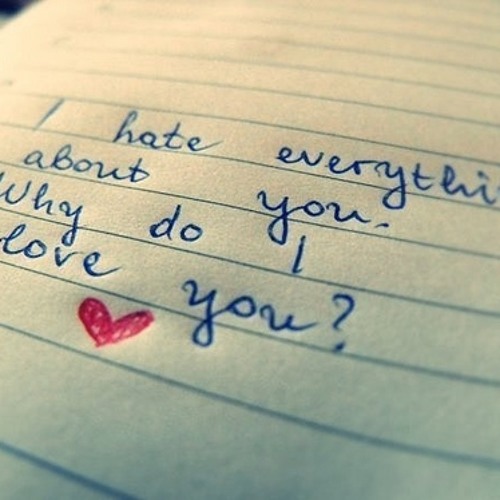 I hate everythi
about you.
Why do I
love you?